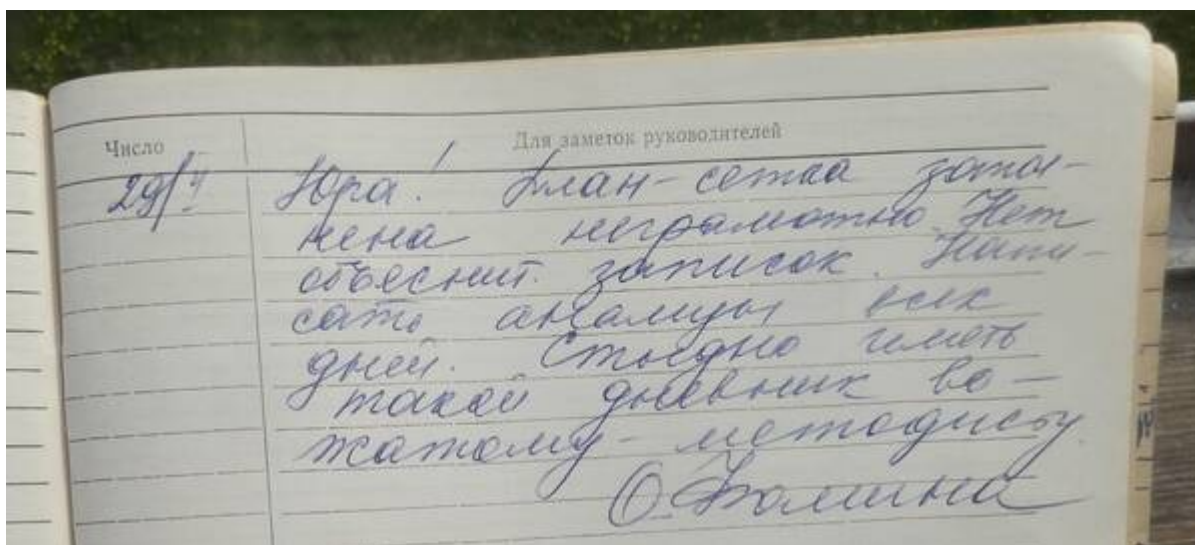 Число Для заметок руководителей
29/V Юра! План-сетка запол-
нена неграмотно. Нет
объяснит. записок. Напи-
сать анализы всех
дней. Стыдно иметь
такой дневник во-
жатому-методисту